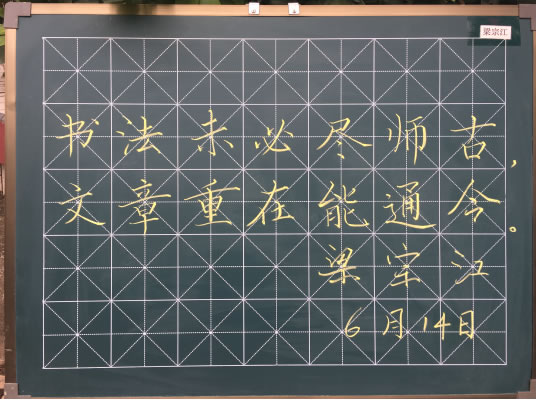 梁宗江
书法未必尽师古，
文章重在能通今。
梁宗江
6月14日